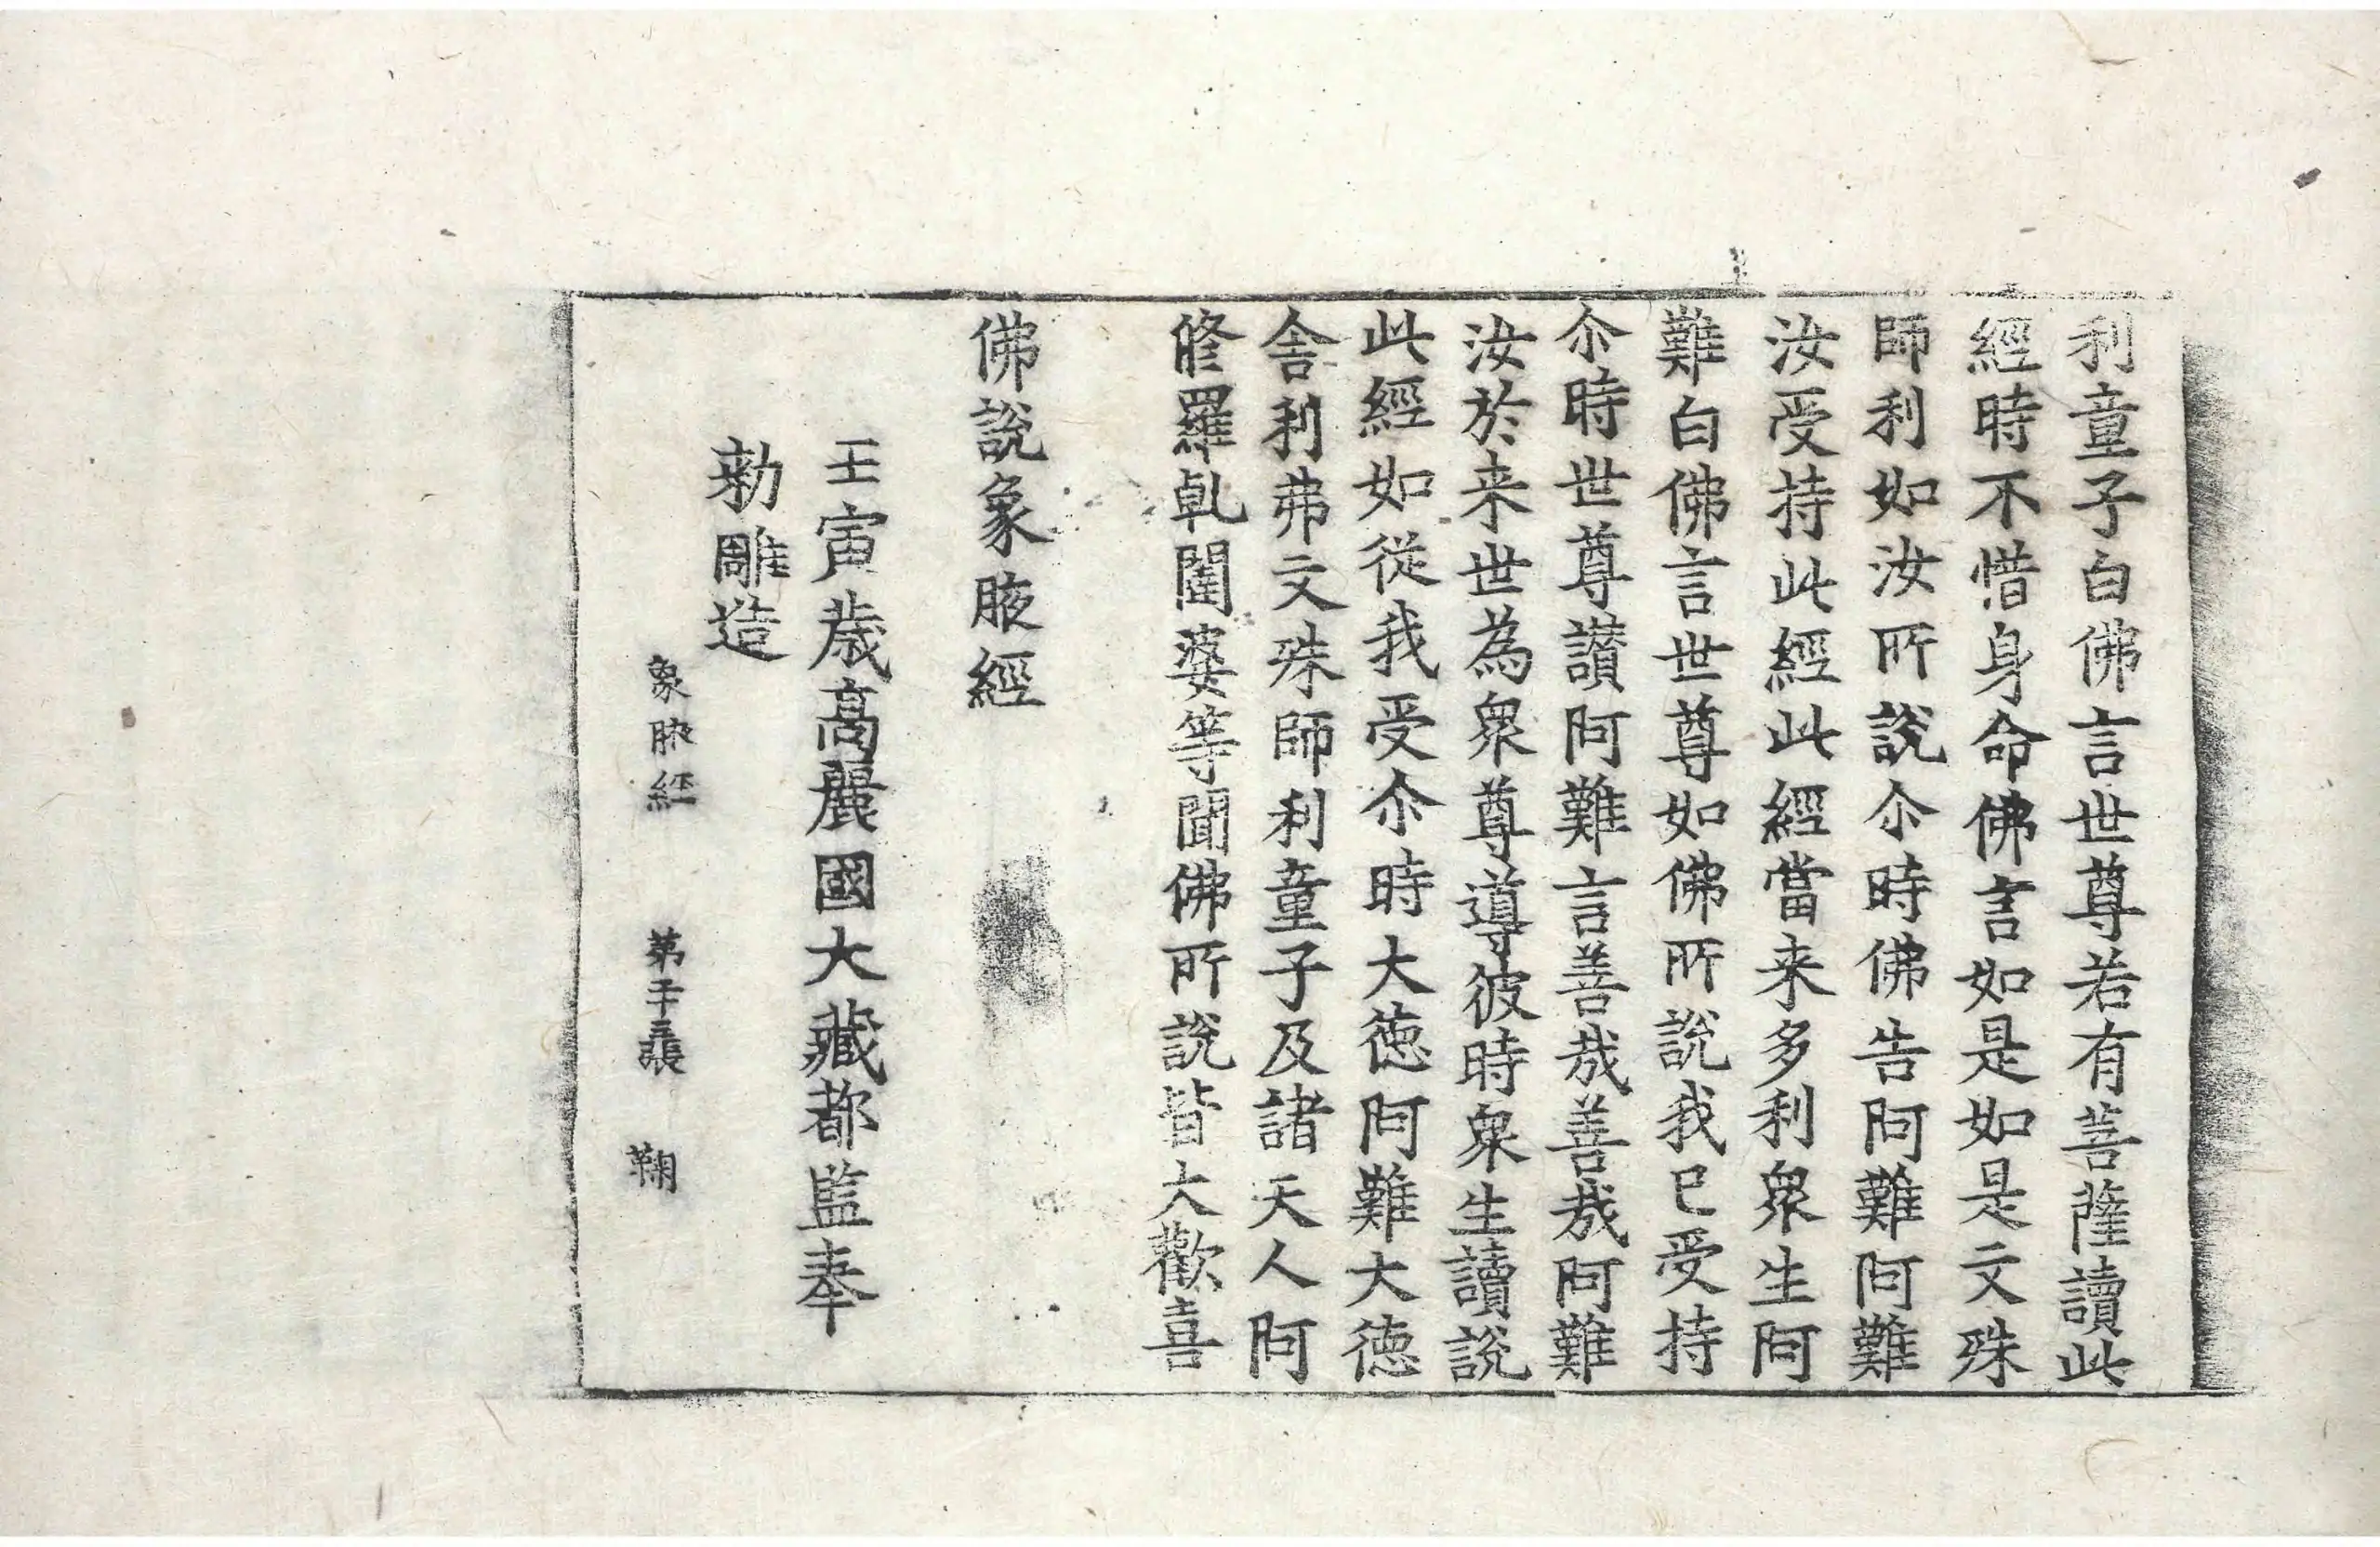 利童子白佛言世尊若有菩薩讀此
經時不惜身命佛言如是如是文殊
師利如汝所說尒時佛告阿難阿難
汝受持此經此經當来多利衆生阿
難白佛言世尊如佛所說我已受持
尒時世尊讃阿難言善哉善哉阿難
汝於来世為衆尊導彼時衆生讀說
此經如從我受尒時大徳阿難大徳
舍利弗文殊師利童子及諸天人阿
脩羅乹闥婆等聞佛所說皆大歡喜
佛說象腋經
壬寅歳高麗國大藏都監奉
勑雕造
象腋經 第十三張 鞠